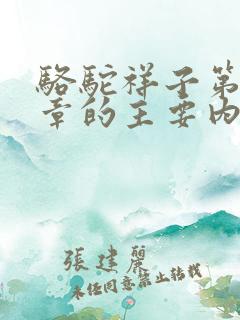 駱駝祥子第
章的主要内
張建麗
未经同意禁止转载